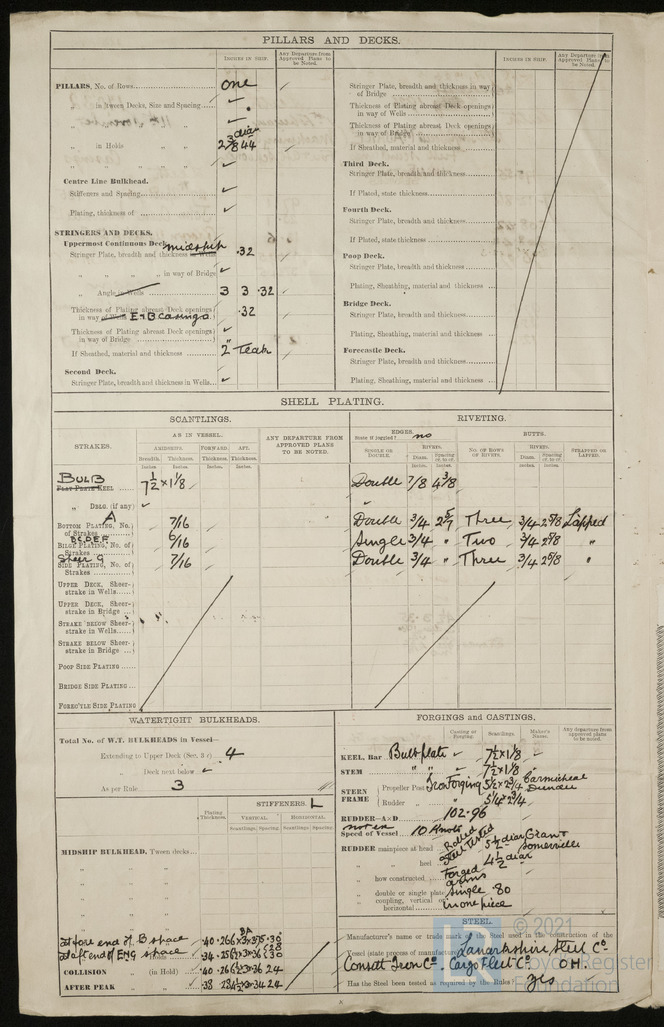 PILLARS AND DECKS.
INCHES IN SHIP.
Any Departure from Approved Plans to be Noted.
INCHES IN SHIP.
Any Departure from Approved Plans to be Noted.
PILLARS, No. of Rows one
„ in 'tween Decks, Size and Spacing
„ in Holds 2 3/8 diam 44
Centre Line Bulkhead.
Stiffeners and Spacing
Plating, thickness of
STRINGERS AND DECKS.
Uppermost Continuous Deck. midship
Stringer Plate, breadth and thickness in Wells .32
„ „ „ „ in way of Bridge
„ Angle in Wells 3 3 .32
Thickness of Plating abreast Deck openings in way of Wells E & B casings .32
Thickness of Plating abreast Deck openings in way of Bridge
If Sheathed, material and thickness 2" Teak
Second Deck.
Stringer Plate, breadth and thickness in Wells
Stringer Plate, breadth and thickness in way of Bridge
Thickness of Plating abreast Deck openings in way of Wells
Thickness of Plating abreast Deck openings in way of Bridge
If Sheathed, material and thickness
Third Deck.
Stringer Plate, breadth and thickness
If Plated, state thickness
Fourth Deck.
Stringer Plate, breadth and thickness
If Plated, state thickness
Poop Deck.
Stringer Plate, breadth and thickness
Plating, Sheathing, material and thickness
Bridge Deck.
Stringer Plate, breadth and thickness
Plating, Sheathing, material and thickness
Forecastle Deck.
Stringer Plate, breadth and thickness
Plating, Sheathing, material and thickness
SHELL PLATING.
SCANTLINGS.
RIVETING.
STRAKES.
AS IN VESSEL.
AMIDSHIPS. FORWARD. AFT.
Breadth. Thickness. Thickness. Thickness.
Inches Inches Inches Inches
ANY DEPARTURE FROM APPROVED PLANS TO BE NOTED.
EDGES.
State if joggled? no
SINGLE OR DOUBLE.
RIVETS.
Diam. Spacing cr. to cr.
BUTTS.
NO. OF ROWS OF RIVETS.
RIVETS.
Diam. Spacing cr. to cr.
STRAPPED OR LAPPED.
BULB
FLAT PLATE KEEL 7 1/2 × 1 1/8 Double 7/8 4 3/8
„ DBLG. (if any)
A
BOTTOM PLATING, No. of Strakes 7/16 Double 3/4 Three 3/4 2 5/8 Lapped
B C D E F
BILGE PLATING, No. of Strakes 6/16 Single 3/4 „ Two 3/4 2 5/8 „
Sheer G
SIDE PLATING, No. of Strakes 7/16 Double 3/4 „ Three 3/4 2 5/8 „
UPPER DECK, Sheerstrake in Wells
UPPER DECK, Sheerstrake in Bridge
STRAKE BELOW Sheerstrake in Wells
STRAKE BELOW Sheerstrake in Bridge
POOP SIDE PLATING
BRIDGE SIDE PLATING
FORECASTLE SIDE PLATING
WATERTIGHT BULKHEADS.
Total No. of W.T. BULKHEADS in Vessel—
Extending to Upper Deck 4
Deck next below
As per Rule 3
Plating Thickness.
STIFFENERS. L
VERTICAL. HORIZONTAL.
Scantlings. Spacing. Scantlings. Spacing.
MIDSHIP BULKHEAD, 'Tween decks
at fore end of B space .40
at aft end of ENG space .34
COLLISION „ (in Hold) .40 24
AFTER PEAK „ .38 24
FORGINGS AND CASTINGS.
Casting or Forging.
Scantlings.
Maker's Name.
Any departure from approved plans to be noted.
KEEL, Bar Bulb plate 7 1/2 × 1 1/8
STEM „ „ 7 1/2 × 1 1/8
STERN FRAME Propeller Post Iron Forging 5 1/2 × 2 3/4 Carmichael Dundee
Rudder „ „ 5 1/4 × 2 3/4
RUDDER—A×D 102.96
Speed of Vessel 10 Knots
RUDDER mainpiece at head Rolled Steel Tested 5 1/4 diar Grant Somerville
„ heel 4 1/2 diar
„ how constructed Forged arms
„ double or single plate single .80
„ coupling, vertical or horizontal in one piece
STEEL.
Manufacturer's name or trade mark of the Steel used in the construction of the Vessel (state process of manufacture) Lanarkshire Steel Co.
Consett Iron Co. Cargo Fleet Co. O.H.
Has the Steel been tested as required by the Rules? yes
© 2021
Lloyd's Register
Foundation